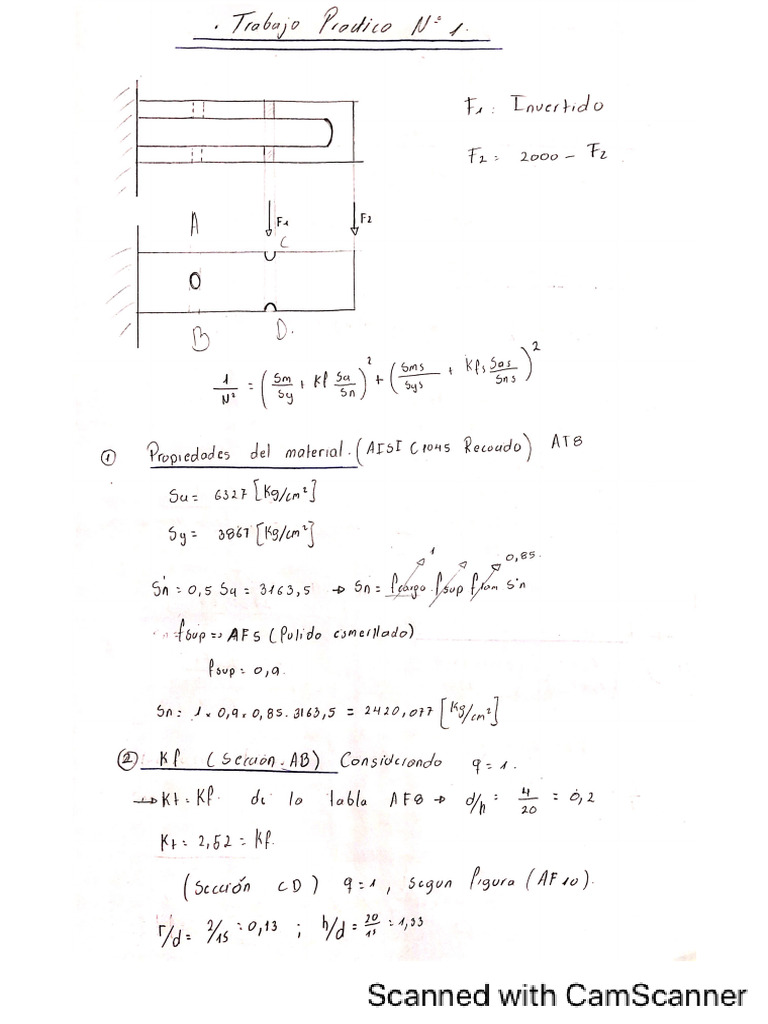 . Trabajo Practico N° 1.
F1: Invertido
F2 = 2000 - F2
F1
F2
A
C
B
D.
1/N² = (Sm/Sy + Kf Sa/Sn)² + (Sms/Sys + Kfs Sas/Sns)²
① Propiedades del material. (AISI C1045 Recocido) AT8
Su = 6327 [Kg/cm²]
Sy = 3867 [Kg/cm²]
Sń = 0,5 Su = 3163,5 → Sn = fcarga 1 fsup ftam 0,85. Sń
fsup => AF5 (Pulido esmerilado)
fsup = 0,9.
Sn: 1 x 0,9 x 0,85. 3163,5 = 2420,077 [Kg/cm²]
② Kf. (Sección. AB) Considerando q = 1.
→ Kt = Kf. de la tabla AF8 → d/h = 4/20 = 0,2
Kt = 2,52 = Kf.
(Sección CD) q = 1, segun figura (AF10).
r/d = 2/15 = 0,13 ; h/d = 20/15 = 1,33
Scanned with CamScanner